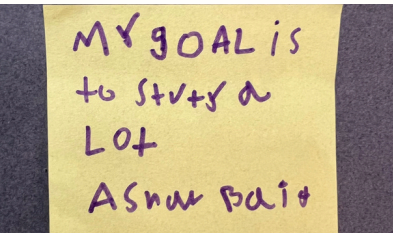 MY gOAL is
to Stuty a
LOt
ASnav Bait